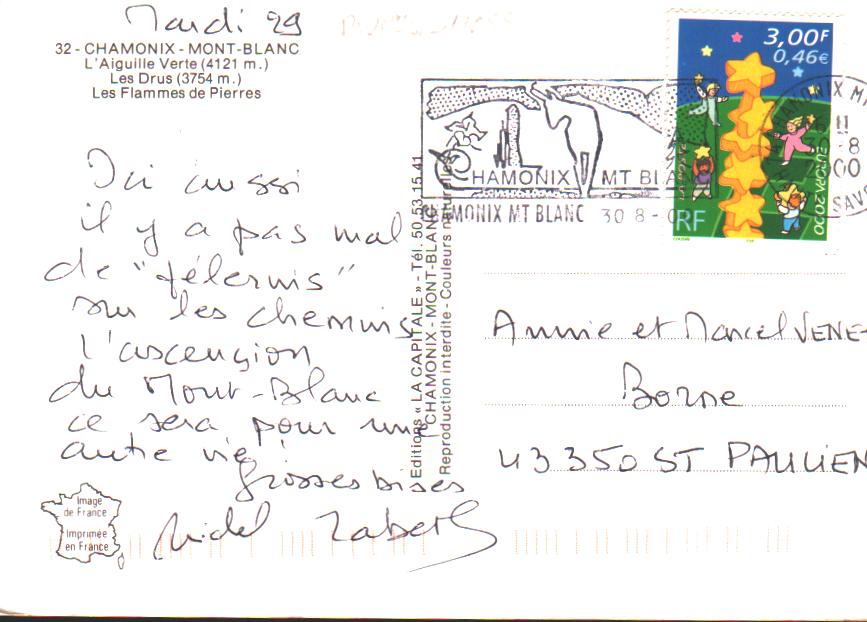 Mardi 29
32 - CHAMONIX - MONT-BLANC
L'Aiguille Verte (4121 m.)
Les Drus (3754 m.)
Les Flammes de Pierres
Ici aussi
il y a pas mal
de "pélerins"
sur les chemins
l'ascension
du Mont-Blanc
ce sera pour une
autre vie !
Grosses bises
Michel
Image
de France
Imprimée
en France
Editions « LA CAPITALE » - Tél. 50.53.15.41
CHAMONIX - MONT-BLANC
Reproduction interdite - Couleurs naturelles
3,00F
0,46€
LA POSTE
EUROPE 2000
RF
CHAMONIX MT BLA
CHAMONIX MT BLANC 30 8 -
HAMONIX M
8
2000
SAV
Annie et Marcel VENE-
Borne
43350 ST PAULIEN